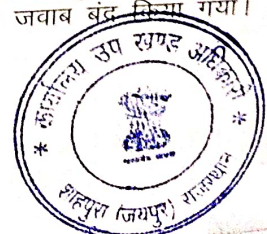 जवाब बंद किया गया।
* कार्यालय उप खण्ड अधिकारी *
शाहपुरा (जयपुर) राजस्थान